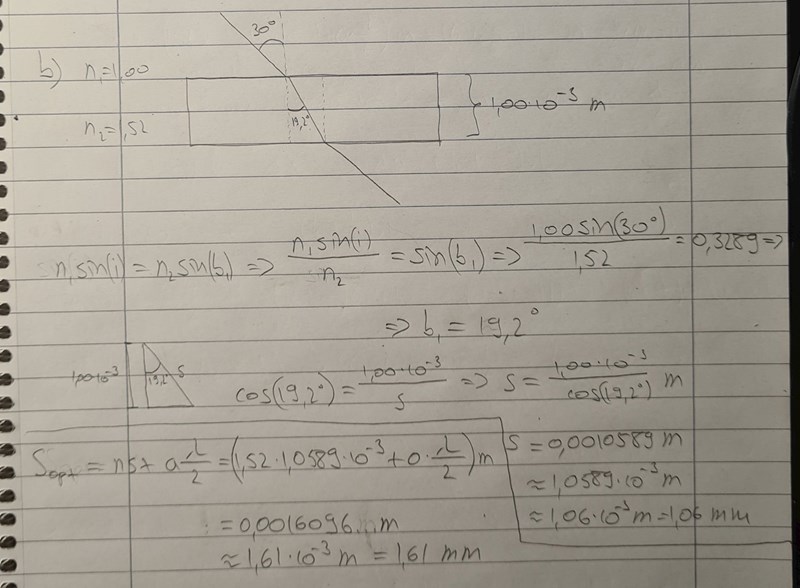 30°
b) n₁=1,00
n₂=1,52
19,2°
1,00·10⁻³ m
n₁sin(i) = n₂sin(b₁) => n₁sin(i)/n₂ = sin(b₁) => 1,00sin(30°)/1,52 = 0,3289 =>
=> b₁ = 19,2°
1,00·10⁻³
19,2°
s
cos(19,2°) = 1,00·10⁻³/s => s = 1,00·10⁻³/cos(19,2°) m
s = 0,0010589 m
≈ 1,0589·10⁻³ m
≈ 1,06·10⁻³ m = 1,06 mm
Sopt = ns + a λ/2 = (1,52·1,0589·10⁻³ + 0·λ/2) m
= 0,0016096... m
≈ 1,61·10⁻³ m = 1,61 mm